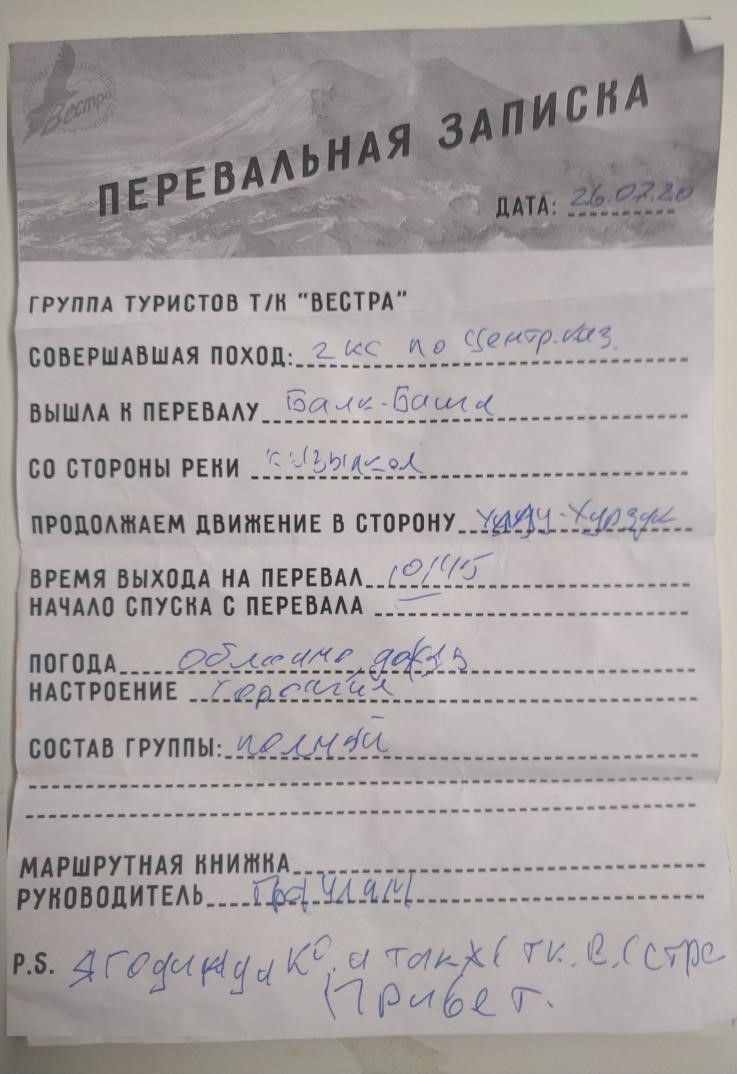 Вестра
ПЕРЕВАЛЬНАЯ ЗАПИСКА
ДАТА: 26.07.20
ГРУППА ТУРИСТОВ Т/К "ВЕСТРА"
СОВЕРШАВШАЯ ПОХОД: 2 кс по центр.каз.
ВЫШЛА К ПЕРЕВАЛУ Балк-Баши
СО СТОРОНЫ РЕКИ Кызылкол
ПРОДОЛЖАЕМ ДВИЖЕНИЕ В СТОРОНУ Уллу-Хурзук
ВРЕМЯ ВЫХОДА НА ПЕРЕВАЛ 10:45
НАЧАЛО СПУСКА С ПЕРЕВАЛА —
ПОГОДА облачно, дождь
НАСТРОЕНИЕ
СОСТАВ ГРУППЫ: полный
МАРШРУТНАЯ КНИЖКА
РУКОВОДИТЕЛЬ
P.S. а также тк. Вестра
Привет.